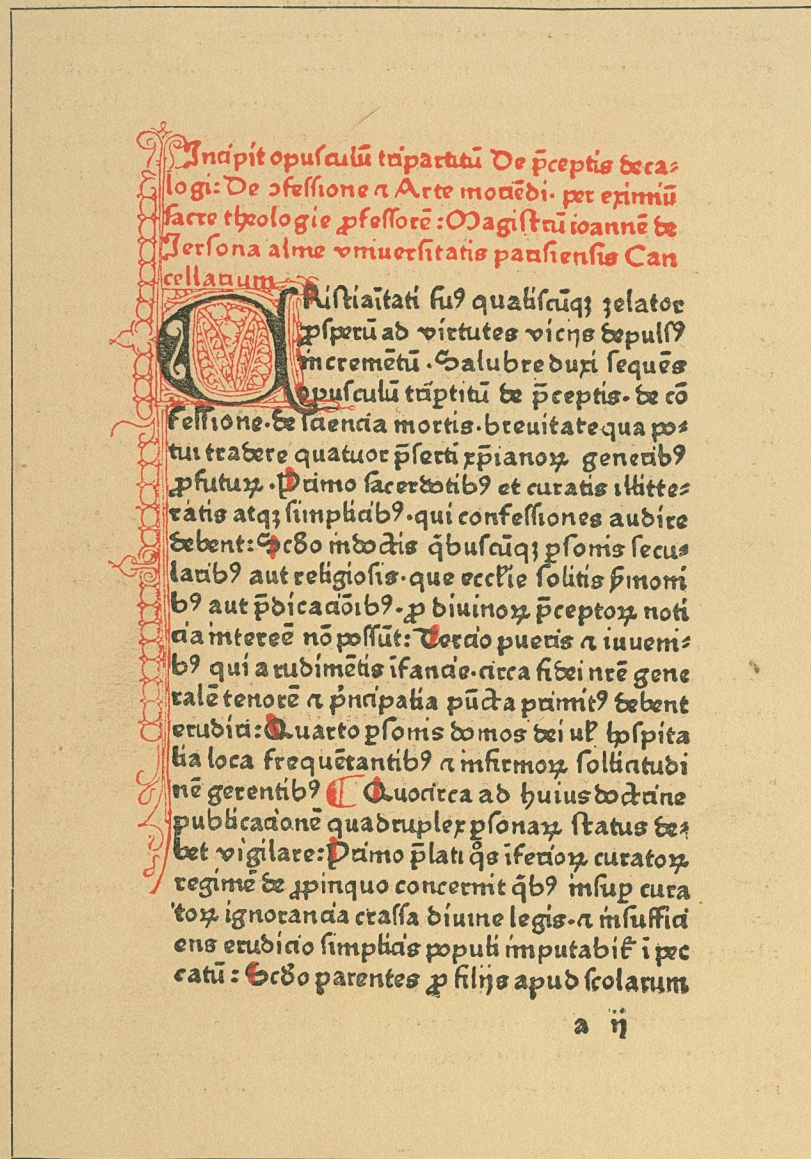 Incipit opusculū tripartitū De p̄ceptis deca⸗
logi: De ↄfessione ⁊ Arte moriēdi· per eximiū
sacre theologie ꝓfessorē: Magistrū ioannē de
Jersona alme vniuersitatis parisiensis Can
cellarium
CRistiaītati suꝰ qualiscūqꝫ zelator
ꝓsperū ad virtutes vicijs depulsꝰ
incremētū · Salubre duxi sequēs
opusculū trip̱titū de p̄ceptis· de cō
fessione· de sciencia mortis· breuitate qua po⸗
tui tradere quatuor p̄serti xp̄ianoꝝ generibꝰ
ꝓfuturꝝ · Primo sacerdotibꝰ et curatis illitte⸗
ratis atqꝫ simplicibꝰ· qui confessiones audire
debent: Scdo indoctis q̄buscūqꝫ ꝑsonis secu⸗
laribꝰ aut religiosis· que eccl̄ie solitis s̄moni
bꝰ aut p̄dicacōībꝰ· ꝓ diuinoꝝ p̄ceptoꝝ noti
cia intereē nō possūt: Tercio pueris ⁊ iuueni⸗
bꝰ qui a rudimētis īfancie· circa fidei nr̄e gene
ralē tenorē ⁊ p̄ncipalia pūcta primitꝰ debent
erudiri: Quarto ꝑsonis domos dei ul̄ hospita
lia loca frequētantibꝰ ⁊ infirmoꝝ sollicitudi
nē gerentibꝰ ¶ Quocirca ad huius doctrine
publicacionē quadruplex ꝑsonaꝝ status de⸗
bet vigilare: Primo p̄lati q̊s īferioꝝ curatoꝝ
regimē de ꝓpinquo concernit q̄bꝰ insuꝑ cura
toꝝ ignorancia crassa diuine legis· ⁊ insuffici
ens erudicio simplicis populi imputabit̄ ī pec
catū: Scdo parentes ꝓ filijs apud scolarum
a ij